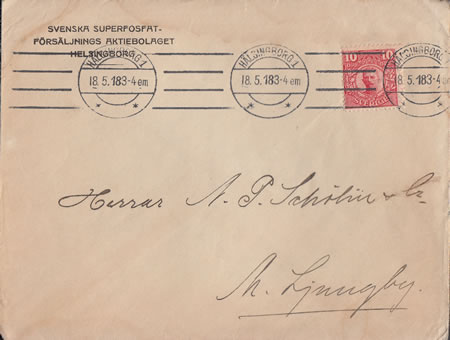 SVENSKA SUPERFOSFAT-
FÖRSÄLJNINGS AKTIEBOLAGET
HELSINGBORG
HÄLSINGBORG 1
18.5.183-4 em
HÄLSINGBORG 1
18.5.183-4 em
HÄLSINGBORG 1
18.5.183-4 em
10 10
SVERIGE
Herrar N. P. Schölin & Co
M. Ljungby.